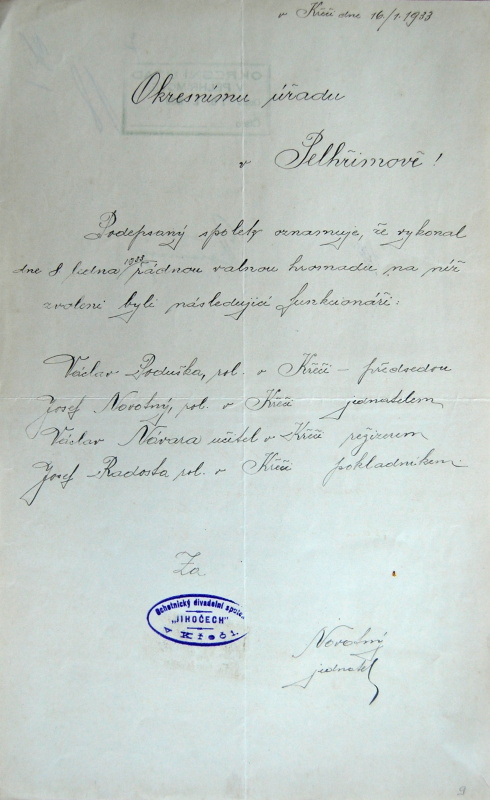 v Křči dne 16/1. 1933
Okresnímu úřadu
v Pelhřimově!
Podepsaný spolek oznamuje, že vykonal
dne 8 ledna 1933 řádnou valnou hromadu na níž
zvoleni byli následující funkcionáři:
Václav Poduška, rol. v Křči – předsedou
Josef Novotný, rol. v Křči jednatelem
Václav Návara učitel v Křči režizerem
Josef Radosta rol. v Křči pokladníkem.
Za
Ochotnický divadelní spolek
„JIHOČECH"
v Křeči.
Novotný
jednatel
9